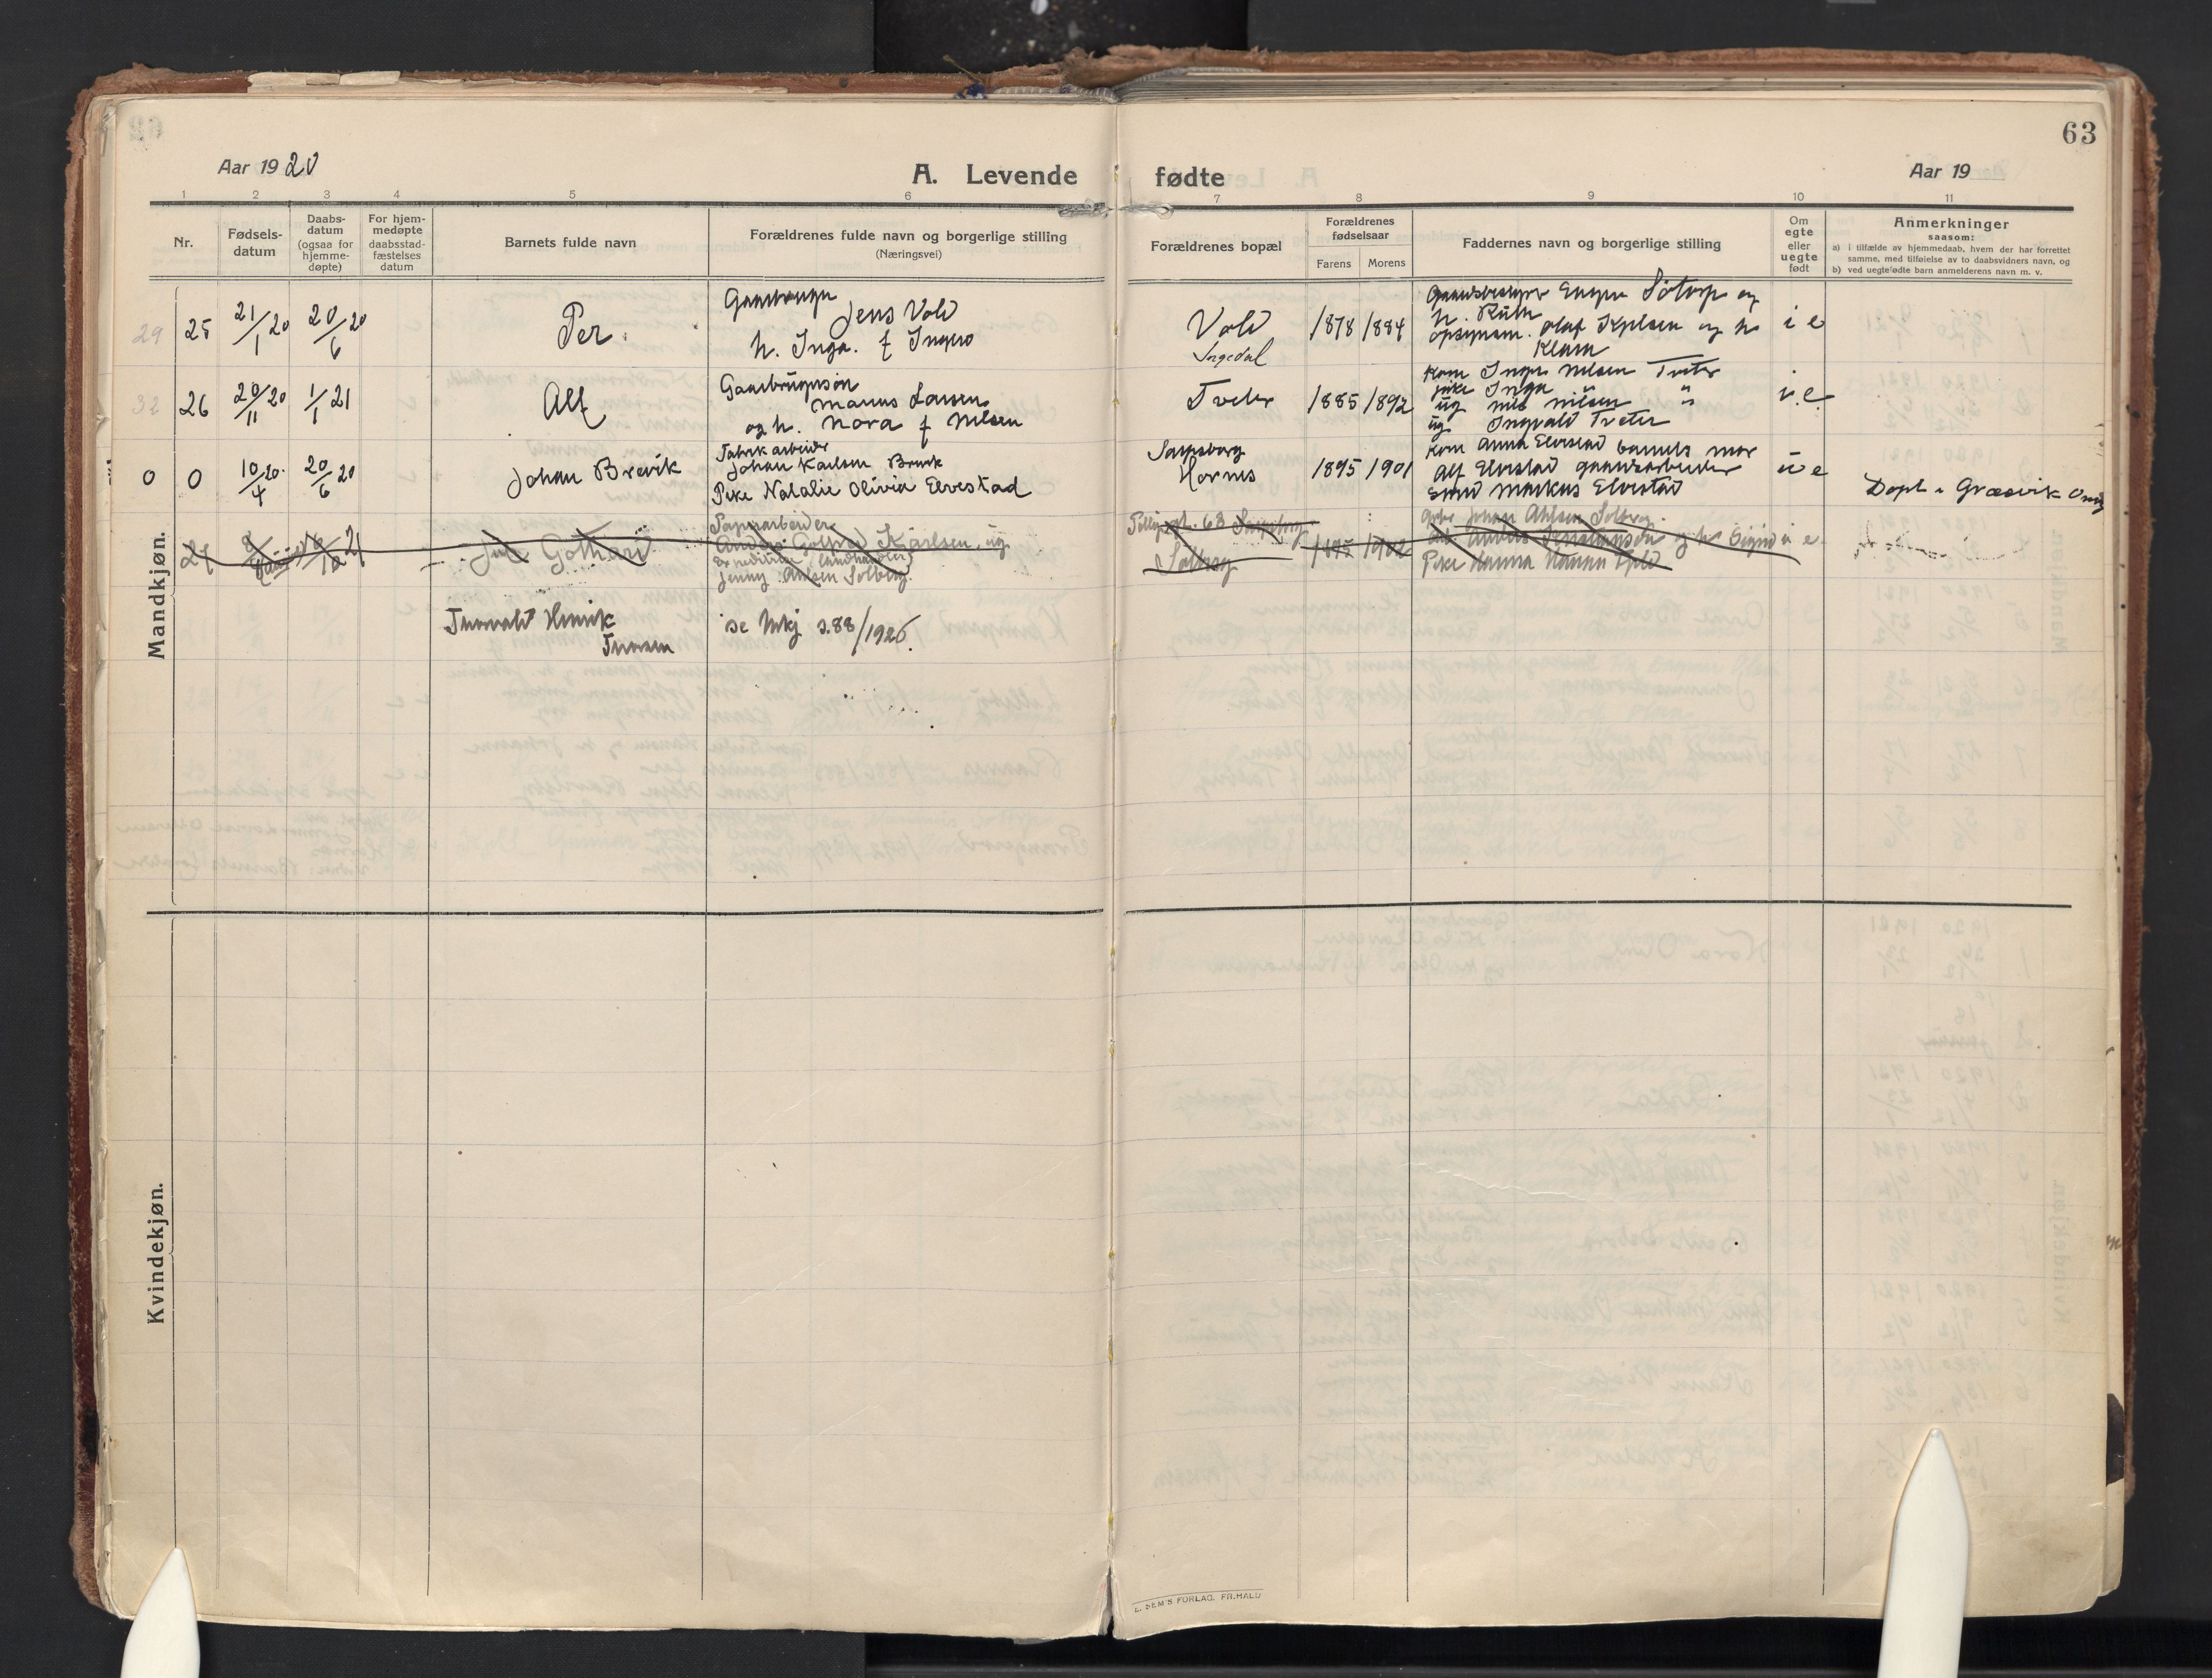 63
Aar 1920
A. Levende fødte
Aar 19
1 2 3 4 5 6 7 8 9 10 11
Nr.
Fødsels-
datum
Daabs-
datum
(ogsaa for
hjemme-
døpte)
For hjem-
medøpte
daabsstad-
fæstelses
datum
Barnets fulde navn
Forældrenes fulde navn og borgerlige stilling
(Næringsvei)
Forældrenes bopæl
Forældrenes
fødselsaar
Farens Morens
Faddernes navn og borgerlige stilling
Om
egte
eller
uegte
født
Anmerkninger
saasom:
a) i tilfælde av hjemmedaab, hvem der har forrettet
samme, med tilføielse av to daabsvidners navn, og
b) ved uegtefødte barn anmelderens navn m. v.
Mandkjøn.
29 25 21/1 20 20/6 20
Per
Gaardbruger
Jens Vold
h. Inga. f Ingero
Vold
Ingedal
1878 1884
h. Ruth
Olaf
og h
Klara
i e
32 26 20/11 20 1/1 21
Alf
Gaardbrugersøn
Marius Larsen
og h. Nora f Nilsen
Tveter
1885 1892
Kone Inger Nilsen Tveter
pike Inga "
ug Nils Nilsen "
ug. Ingvald Tveter
i.e
0 0 10/4 20. 20/6 20
Johan Brevik
Fabrikarbeider
Johan Karlsen Brevik
Pike Natalie Olivia Elvestad
Sarpsborg
Hornes
1895 1901
Kone Anna Elvestad barnets mor
Alf Elvestad gaardsarbeider
Markus Elvestad
u e
Døpt i Græsvik Onsø
27 21
Gothard
Papirarbeider
Anders Gotfred Karlsen, ug
Jenny Ahlsen Solberg.
63 Sarpsborg
Solberg
1895 1902
Johan Ahlsen Solberg.
og h. Sigrid
Pike Hanna
u e.
Torvald Henrik
Thoresen
se Mkj s.88/1926.
Kvindekjøn.
E. SEM'S FORLAG. FR.HALD